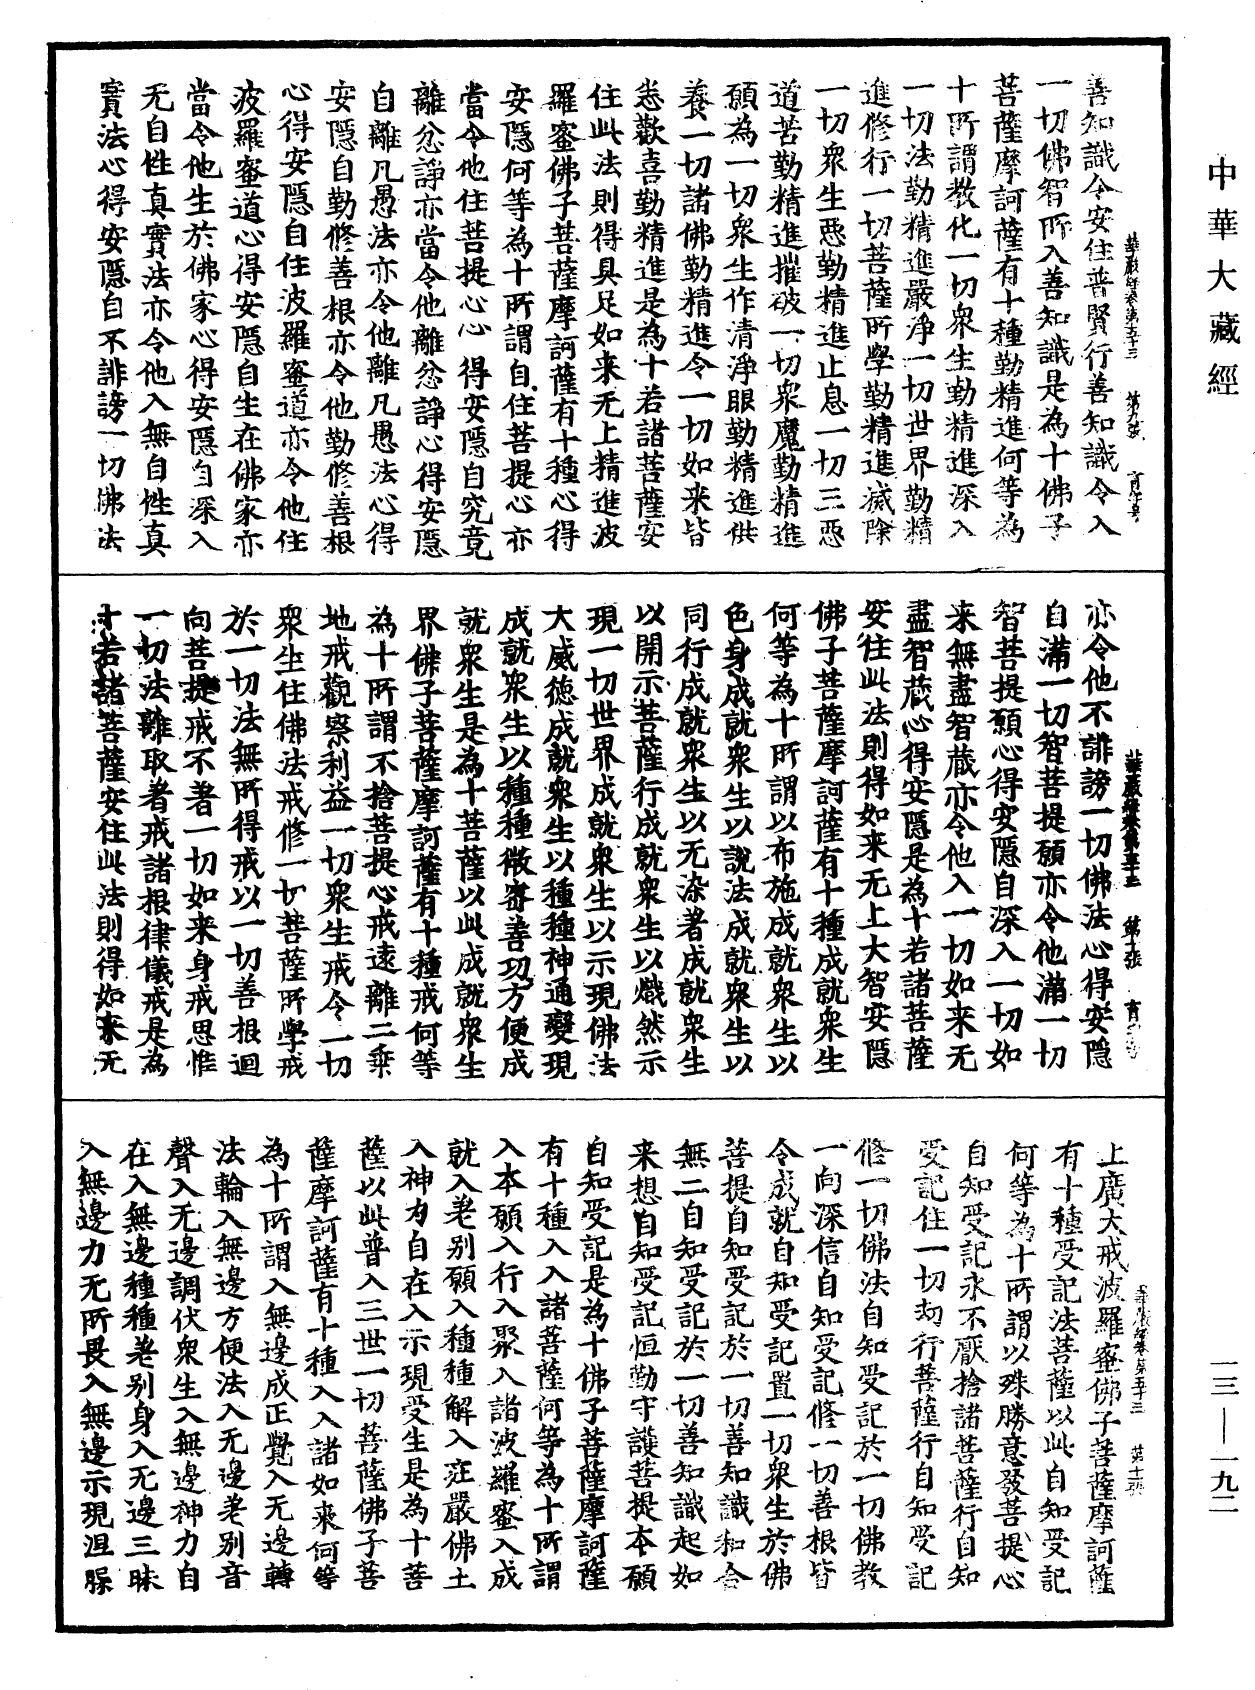 中華大藏經
善知識令安住普賢行善知識令入
一切佛智所入善知識是為十佛子
菩薩摩訶薩有十種勤精進何等為
十所謂教化一切衆生勤精進深入
一切法勤精進嚴淨一切世界勤精
進修行一切菩薩所學勤精進滅除
一切衆生惡勤精進止息一切三惡
道苦勤精進摧破一切衆魔勤精進
願為一切衆生作清淨眼勤精進供
養一切諸佛勤精進令一切如来皆
悉歡喜勤精進是為十若諸菩薩安
住此法則得具足如来无上精進波
羅蜜佛子菩薩摩訶薩有十種心得
安隱何等為十所謂自住菩提心亦
當令他住菩提心心得安隱自究竟
離忿諍亦當令他離忿諍心得安隱
自離凡愚法亦令他離凡愚法心得
安隱自勤修善根亦令他勤修善根
心得安隱自住波羅蜜道亦令他住
波羅蜜道心得安隱自生在佛家亦
當令他生於佛家心得安隱自深入
无自性真實法亦令他入無自性真
實法心得安隱自不誹謗一切佛法
華嚴經卷第五十三 第九張
亦令他不誹謗一切佛法心得安隱
自滿一切智菩提願亦令他滿一切
智菩提願心得安隱自深入一切如
来無盡智藏亦令他入一切如来无
盡智藏心得安隱是為十若諸菩薩
安住此法則得如来无上大智安隱
佛子菩薩摩訶薩有十種成就衆生
何等為十所謂以布施成就衆生以
色身成就衆生以說法成就衆生以
同行成就衆生以无染著成就衆生
以開示菩薩行成就衆生以熾然示
現一切世界成就衆生以示現佛法
大威德成就衆生以種種神通變現
成就衆生以種種微密善巧方便成
就衆生是為十菩薩以此成就衆生
界佛子菩薩摩訶薩有十種戒何等
為十所謂不捨菩提心戒遠離二乘
地戒觀察利益一切衆生戒令一切
衆生住佛法戒修一切菩薩所學戒
於一切法無所得戒以一切善根迴
向菩提戒不著一切如来身戒思惟
一切法離取著戒諸根律儀戒是為
十若諸菩薩安住此法則得如来无
華嚴經卷第五十三 第十張
上廣大戒波羅蜜佛子菩薩摩訶薩
有十種受記法菩薩以此自知受記
何等為十所謂以殊勝意發菩提心
自知受記永不厭捨諸菩薩行自知
受記住一切劫行菩薩行自知受記
修一切佛法自知受記於一切佛教
一向深信自知受記修一切善根皆
令成就自知受記置一切衆生於佛
菩提自知受記於一切善知識和合
無二自知受記於一切善知識起如
来想自知受記恒勤守護菩提本願
自知受記是為十佛子菩薩摩訶薩
有十種入入諸菩薩何等為十所謂
入本願入行入聚入諸波羅蜜入成
就入差別願入種種解入莊嚴佛土
入神力自在入示現受生是為十菩
薩以此普入三世一切菩薩佛子菩
薩摩訶薩有十種入入諸如来何等
為十所謂入無邊成正覺入无邊轉
法輪入無邊方便法入无邊差別音
聲入无邊調伏衆生入無邊神力自
在入無邊種種差別身入无邊三昧
入無邊力无所畏入無邊示現涅槃
華嚴經卷第五十三 第十一張
一三—一九二